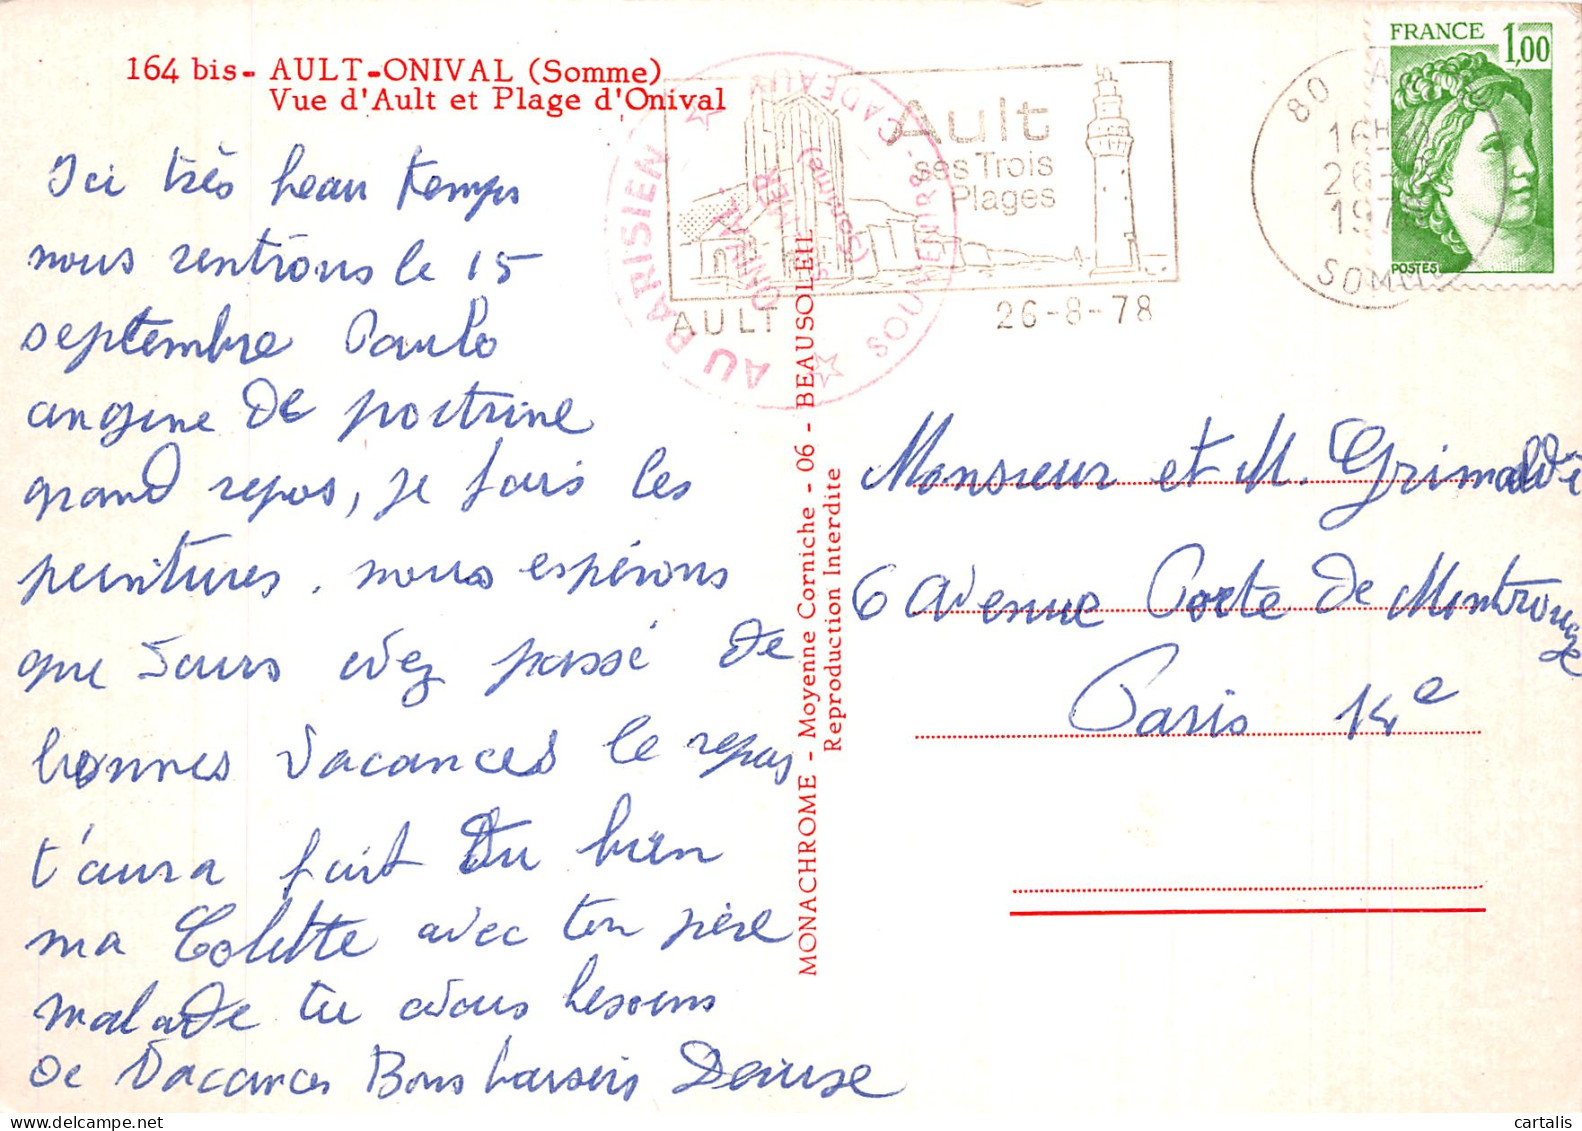 164 bis - AULT-ONIVAL (Somme)
Vue d'Ault et Plage d'Onival
Ici très beau temps
nous rentrons le 15
septembre Paulo
angine de poitrine
grand repos, je fais les
peintures. nous espérons
que vous avez passé de
bonnes vacances le repos
t'aura fait du bien
ma Colette avec ton père
malade tu avais besoins
de vacances Bons baisers Denise
MONACHROME - Moyenne Corniche - 06 - BEAUSOLEIL
Reproduction Interdite
AU BARISIEN
SOUVENIRS - CADEAUX
ONIVAL
MER
(Somme)
Ault
ses Trois
Plages
AULT
26-8-78
80 A
16H
26-
197
SOMME
FRANCE 1,00
POSTES
Monsieur et M. Grimaldi
6 avenue Porte de Montrouge
Paris 14e
cartalis